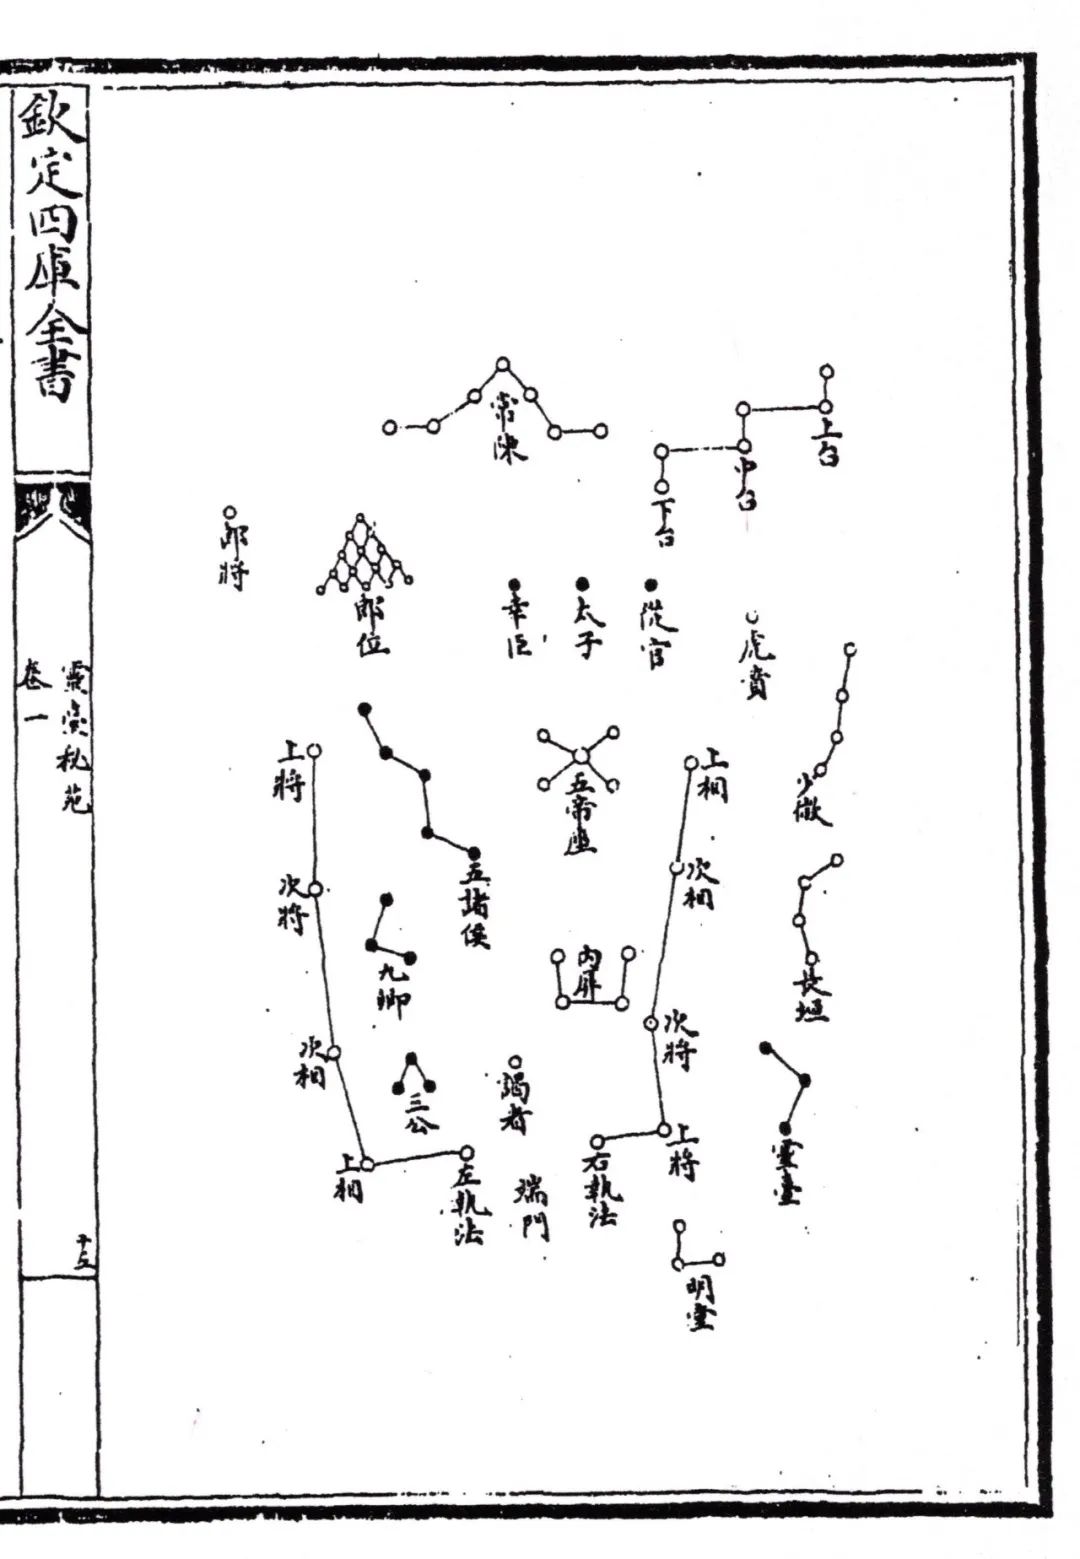 欽定四庫全書
靈臺秘苑
卷一
十五
常陳
上台
中台
下台
郎將
郎位
幸臣
太子
從官
虎賁
少微
上將
五諸侯
五帝座
上相
次將
次相
長垣
九卿
內屏
次相
次將
三公
謁者
靈臺
上相
左執法
端門
右執法
上將
明堂